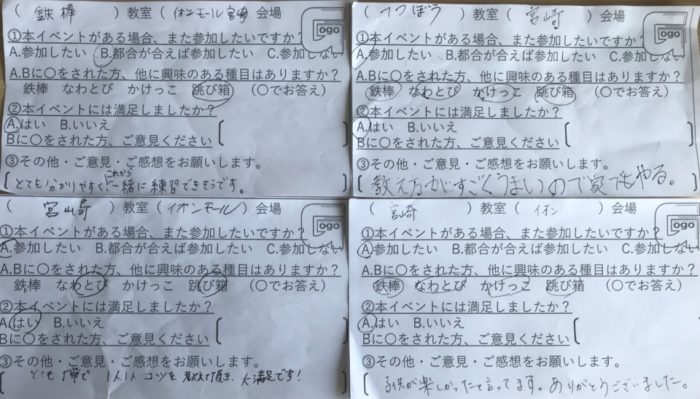 ( 鉄棒 ) 教室 ( イオンモール宮崎 ) 会場
ogo
①本イベントがある場合、また参加したいですか?
A.参加したい B.都合が合えば参加したい C.参加しない
A.Bに〇をされた方、他に興味のある種目はありますか?
鉄棒 なわとび かけっこ 跳び箱 (〇でお答え)
②本イベントには満足しましたか?
A.はい B.いいえ
Bに〇をされた方、ご意見ください
③その他・ご意見・ご感想をお願いします。
とても分かりやすくこれから一緒に練習できそうです。
( てつぼう ) 教室 ( 宮崎 ) 会場
ogo
①本イベントがある場合、また参加したいですか?
A.参加したい B.都合が合えば参加したい C.参加しない
A.Bに〇をされた方、他に興味のある種目はありますか?
鉄棒 なわとび かけっこ 跳び箱 (〇でお答え)
②本イベントには満足しましたか?
A.はい B.いいえ
Bに〇をされた方、ご意見ください
③その他・ご意見・ご感想をお願いします。
教え方がすごくうまいので家でもやる。
( 宮崎 ) 教室 ( イオンモール ) 会場
ogo
①本イベントがある場合、また参加したいですか?
A.参加したい B.都合が合えば参加したい C.参加しない
A.Bに〇をされた方、他に興味のある種目はありますか?
鉄棒 なわとび かけっこ 跳び箱 (〇でお答え)
②本イベントには満足しましたか?
A.はい B.いいえ
Bに〇をされた方、ご意見ください
③その他・ご意見・ご感想をお願いします。
とても丁寧で 1人1人 コツを教えて頂き、大満足です!
( 宮崎 ) 教室 ( イオン ) 会場
ogo
①本イベントがある場合、また参加したいですか?
A.参加したい B.都合が合えば参加したい C.参加しない
A.Bに〇をされた方、他に興味のある種目はありますか?
鉄棒 なわとび かけっこ 跳び箱 (〇でお答え)
②本イベントには満足しましたか?
A.はい B.いいえ
Bに〇をされた方、ご意見ください
③その他・ご意見・ご感想をお願いします。
子供が楽しかったと言ってます。ありがとうございました。